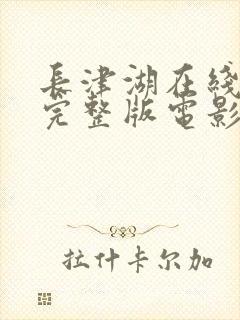 長津湖在綫
完整版電影
拉什卡尔加